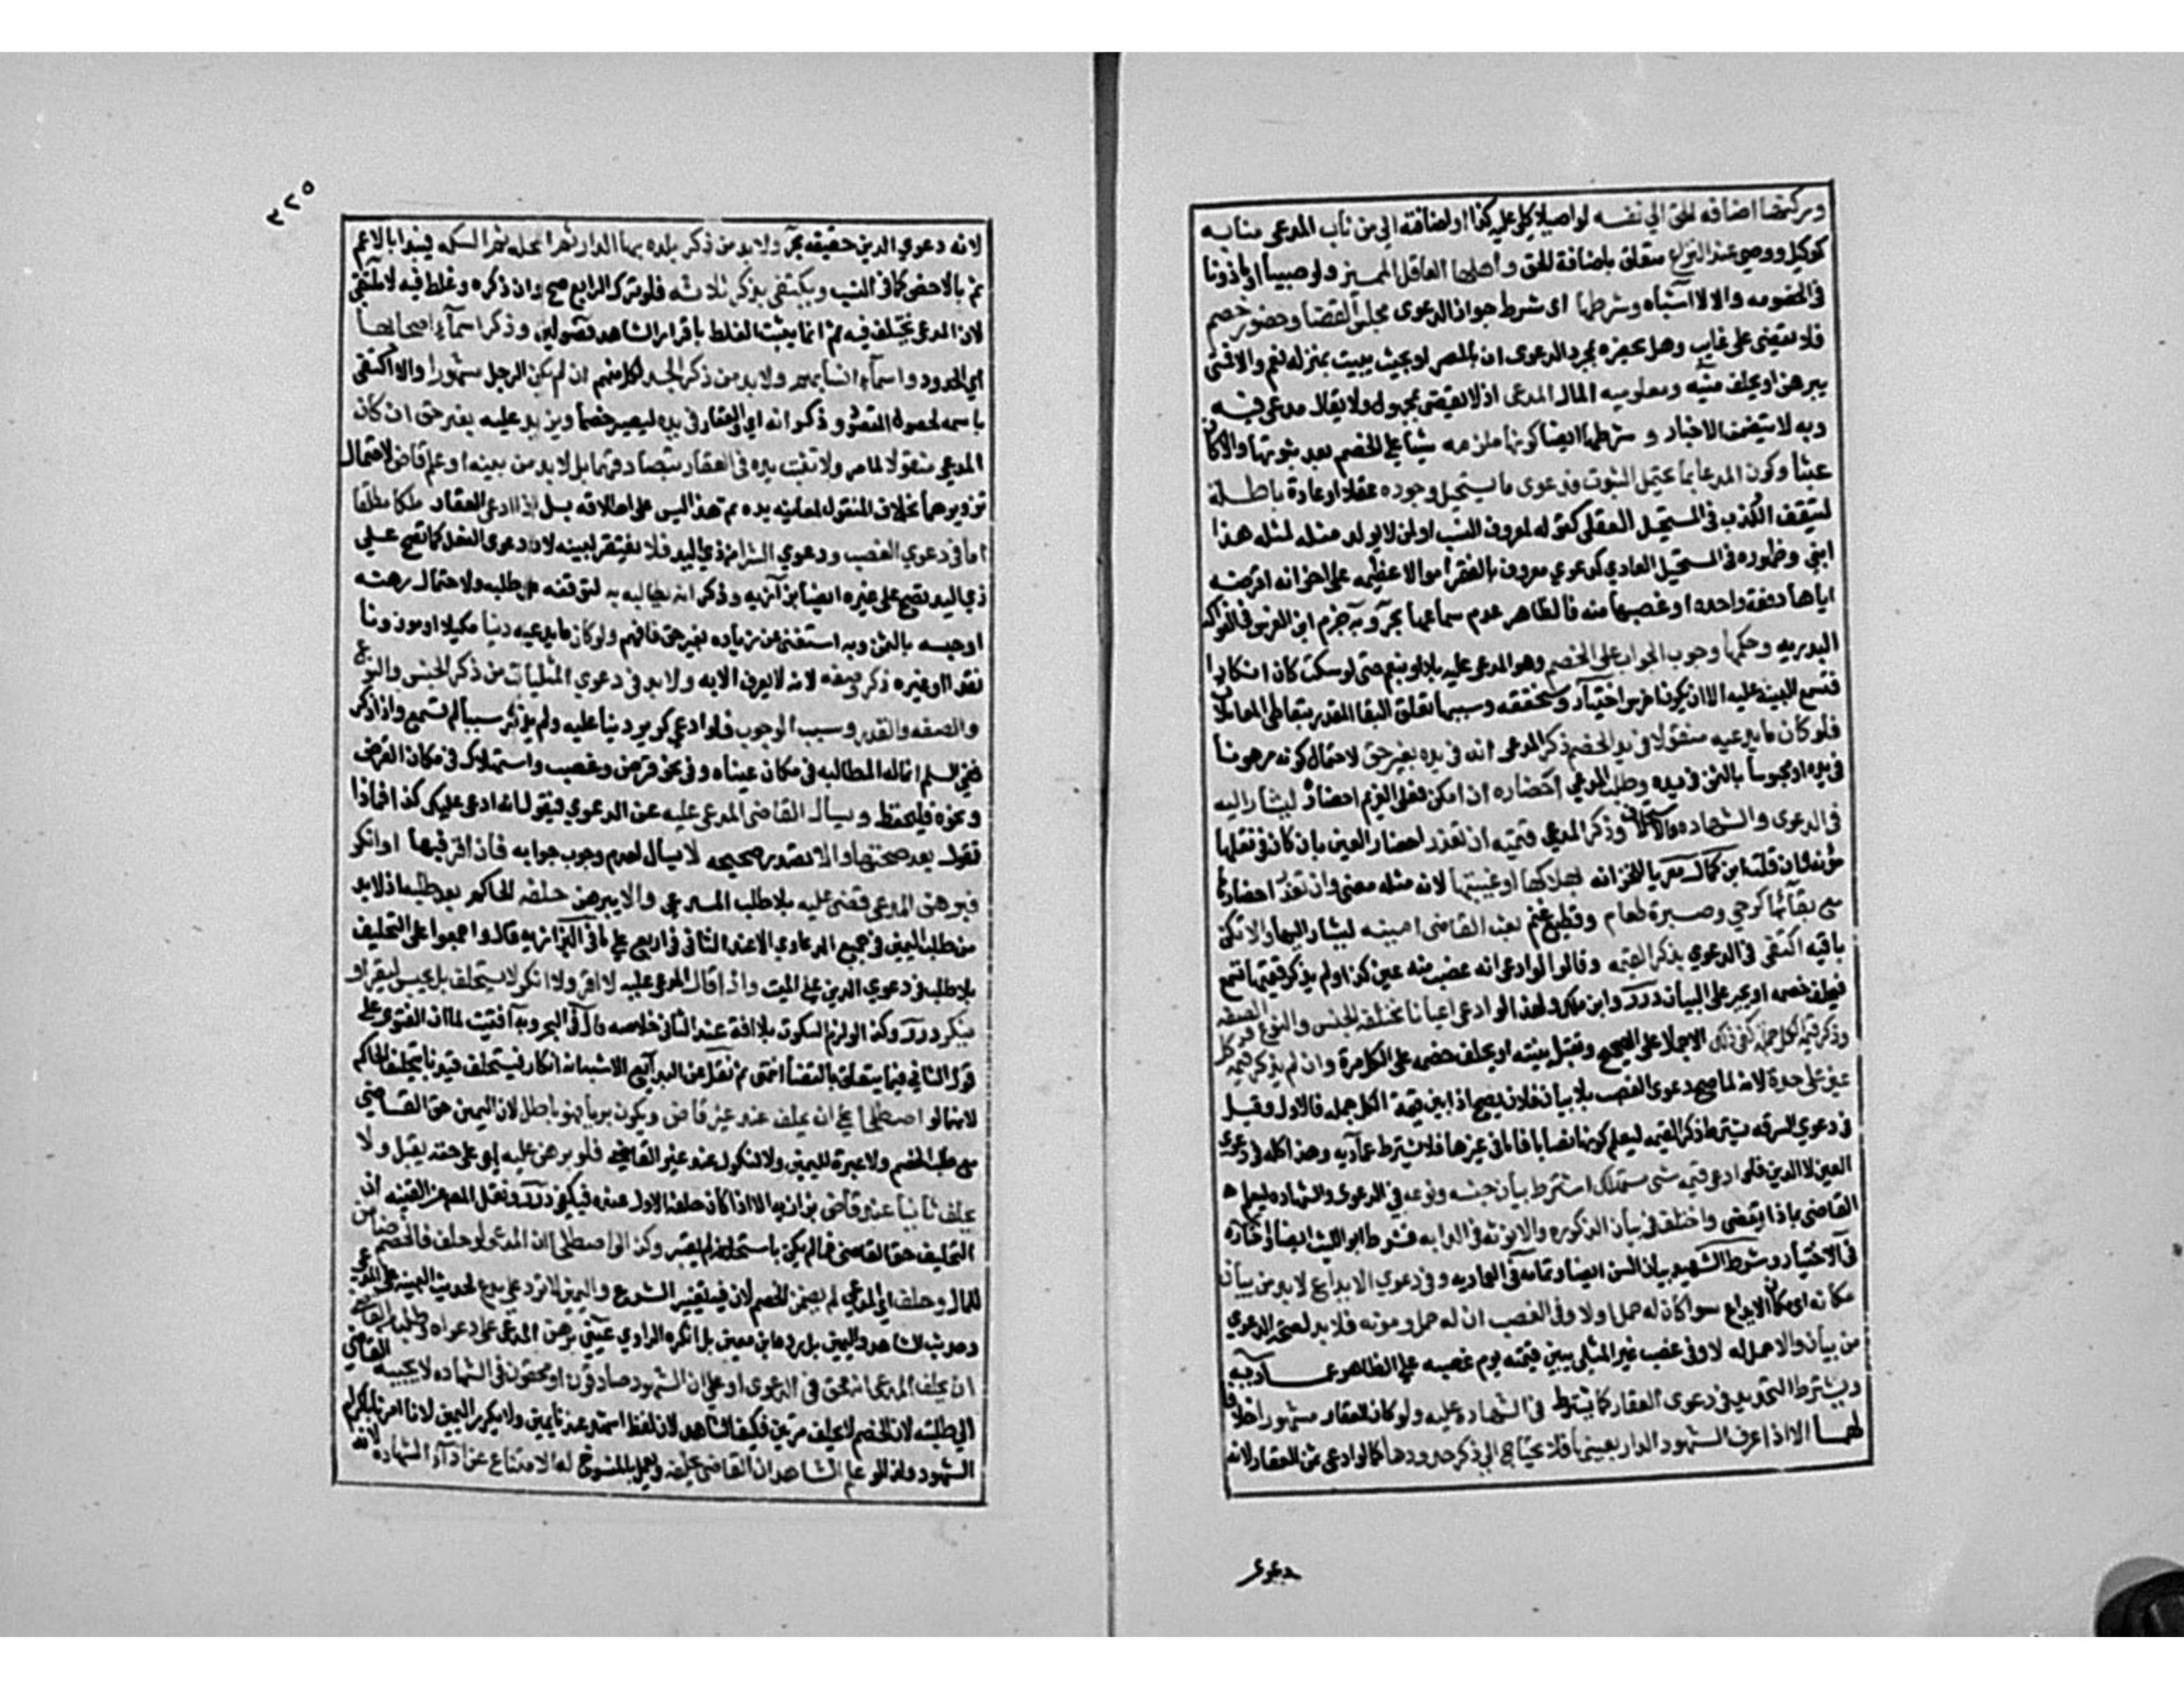 وركنها اضافه الحق الي نفسه لو اصيلا كلي عليه كذا او اضافته الي من ناب المدعي منابه
كوكيل ووصي عند النزاع متعلق باضافة الحق واهلها العاقل المميز ولو صبيا ان ماذونا
في الخصومه والا لا اشباه وشرطها اي شرط جواز الدعوى مجلس القضا وحضور خصم
فلا يقضى على غايب وهل يحضره بمجرد الدعوى ان بالمصر او بحيث يبيت بمنزله نعم والا فحتى
يبرهن او يحلف منيه ومعلوميه المال المدعى اذ لا يقضى بمجهول ولا يقال مدعى فيه
وبه لا يتضمن الاخبار و شرطها ايضا كونها ملزمه شيئا على الخصم بعد ثبوتها والا كان
عبثا وكون المدعا بما يحتمل الثبوت فدعوى ما يستحيل وجوده عقلا او عادة باطلة
لتيقن الكذب في المستحيل العقلي كقوله لمعروف النسب او لمن لا يولد مثله لمثله هذا
ابني وظهوره في المستحيل العادي كدعوي معروف بالفقر اموالا عظيمه على اخر انه اقرضه
اياها دفعة واحده او غصبها منه فالظاهر عدم سماعها بحر وبه جزم ابن الغرس في الفواكه
البدريه وحكمها وجوب الجواب على الخصم وهو المدعى عليه بلا او بنعم حتى لو سكت كان انكارا
فتسمع البينه عليه الا ان يكون اخرس اختيار وسنحققه وسببها تعلق البقا المقدر بتعاطي المعاملات
فلو كان ما يدعيه منقولا في يد الخصم ذكر المدعي انه في يده بغير حق لاحتمال كونه مرهونا
في يده او محبوسا بالثمن في يده وطلب المدعي احضاره ان امكن فعلى الغريم احضاره ليشار اليه
في الدعوى والشهاده والاستحلاف وذكر المدعي قيمته ان تعذر احضار العين بان كان في نقلها
مؤنه وان قلت ابن كمال معزيا للخزانه لهلاكها او غيبتها لانه مثله معنى وان تعذر احضارها
مع بقائها كرحي وصبرة طعام وقطيع غنم بعث القاضي امينه ليشار اليها والا تكن
باقيه اكتفى في الدعوي بذكر القيمه وقالوا لو ادعى انه غصب منه عين كذا ولم يذكر قيمتها تسمع
فيحلف خصمه او يجبر على البيان درر وابن ملك ولهذا لو ادعى اعيانا مختلفه الجنس والنوع والصفه
وذكر قيمة الكل جملة كفى ذلك الاجمال على الصحيح وتقبل بينته او يحلف خصمه على الكل مرة وان لم يذكر قيمة كل
عين على حدة لانه لما صح دعوى الغصب بلا بيان فلان يصح اذا بين قيمة الكل جمله فالاولى وقيل
في دعوى السرقه يشترط ذكر القيمه ليعلم كونها نصابا فاما في غيرها فلا يشترط عماديه وهذا كله في دعوى
العين لا الدين فلو ادعى قيمه شي مستهلك اشترط بيان جنسه ونوعه في الدعوى والشهاده ليعلم
القاضي بماذا يقضي واختلف في بيان الذكوره والانوثه في الدابه فشرطه ابو الليث ايضا واختاره
في الاختيار وشرط الشهيد بيان السن ايضا وتمامه في العماديه وفي دعوي الايداع لا بد من بيان
مكانه اي مكان الايداع سوا كان له حمل اولا وفي الغصب ان له حمل ومونه فلا بد لصحة الدعوي
من بيانه والا حمل له لا وفي غصب غير المثلي يبين قيمته يوم غصبه على الظاهر عماديه
ويشترط التحديد في دعوى العقار كما يشترط في الشهاده عليه ولو كان العقار مشهورا خلافا
لهما الا اذا عرف الشهود الدار بعينها فلا يحتاج الي ذكر حدودها كما لو ادعى ثمن العقار لانه
دعوى
٢٢٥
لانه دعوي الدين حقيقه بحر ولا بد من ذكر بلده بها الدار ثم المحله ثم السكه فيبدا بالاعم
ثم بالاخص كما في النسب ويكتفي بذكر ثلاثه فلو ترك الرابع صح وان ذكره وغلط فيه لا ملتقى
لان المدعى يختلف فيه ثم انما يثبت الغلط باقرار الشاهد فصولين وذكر اسماء اصحابها
اي الحدود واسماء انسابهم ولا بد من ذكر الجد لكل منهم ان لم يكن الرجل مشهورا والا اكتفى
باسمه لحصول المقصود و ذكر انه اي العقار في يده ليصير خصما ويزيد عليه بغير حق ان كان
المدعي منقولا لما مر ولا تثبت يده في العقار بتصادقهما بل لا بد من بينه او علم قاض لاحتمال
تزويرهما بخلاف المنقول لمعاينة يده ثم هذا ليس على اطلاقه بل اذا ادعى العقار ملكا مطلقا
اما في دعوي الغصب ودعوي الشرا من ذي اليد فلا يفتقر لبينه لان دعوى الفعل كما تصح على
ذي اليد تصح على غيره ايضا بزازيه وذكر انه يطالبه به لتوقفه على طلبه ولاحتمال رهنه
او حبسه بالثمن وبه استغنى عن زياده بغير حق فافهم ولو كان ما يدعيه دينا مكيلا او موزونا
نقدا او غيره ذكر وصفه لانه لا يعرف الا به ولا بد في دعوي المثليات من ذكر الجنس والنوع
والصفه والقدر وسبب الوجوب فلو ادعى كر بر دينا عليه ولم يذكر سببا لم تسمع واذا ذكر
ففي السلم انما له المطالبه في مكان عيناه وفي نحو قرض وغصب واستهلاك في مكان القرض
ونحوه فليحفظ و يسال القاضي المدعى عليه عن الدعوي فيقول انه ادعى عليك كذا فماذا
تقول بعد صحتها والا تصدر صحيحه لا يسال لعدم وجوب جوابه فان اقر فيها او انكر
فبرهن المدعي قضى عليه بلا طلب المدعي والا يبرهن حلفه الحاكم بعد طلبه اذ لا بد
من طلبه اليمين في جميع الدعاوي الا عند الثاني في اربع على ما في البزازيه قال واجمعوا على التحليف
بلا طلب في دعوي الدين على الميت واذا قال المدعى عليه لا اقر ولا انكر لا يستحلف بل يحبس ليقر او
ينكر درر وكذا لو لزم السكوت بلا افة عند الثاني خلاصه قال في البحر وبه افتيت لما ان الفتوى على
قول الثاني فيما يتعلق بالقضا انتهى ثم نقل عن البدائع الاشبه انه انكار فيستحلف قيدنا بتحليف الحاكم
لانهما لو اصطلحا على ان يحلف عند غير قاض ويكون بريا فهو باطل لان اليمين حق القاضي
مع طلب الخصم ولا عبرة لليمين ولا لنكول عند غير القاضي فلو برهن عليه اي على حقه يقبل ولا
يحلف ثانيا عند قاض بزازيه الا اذا كان حلفه الاول عنده فيكفي درر ونقل المص عن القنيه ان
التحليف حق القاضي فما لم يكن باستحلافه لم يعتبر وكذا لو اصطلحا ان المدعي لو حلف فالخصم ضامن
للمال وحلف اي المدعي لم يضمن الخصم لان فيه تغيير الشرع واليمين لا ترد على مدع لحديث البينة على المدعي
وحديث الشاهد واليمين بل رده ابن معين بل انكره الراوي عيني برهن المدعي على دعواه وطلب من القاضي
ان يحلف المدعي انه محق في الدعوى او على ان الشهود صادقون او محقون في الشهاده لا يجيبه القاضي
الي طلبته لان الخصم لا يحلف مرتين فكيف الشاهد لان لفظ اشهد عندنا يمين ولا يكرر اليمين لانا امرنا باكرام
الشهود ولذا لو علم الشاهد ان القاضي يحلفه ويعمل بالمنسوخ له الامتناع عن اداء الشهاده لانه